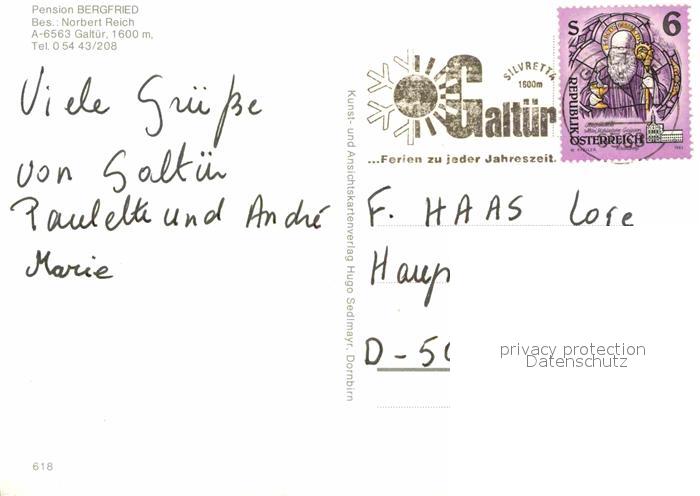 Pension BERGFRIED
Bes.: Norbert Reich
A-6563 Galtür, 1600 m,
Tel. 0 54 43/208
Viele Grüße
von Galtür
Paulette und André
Marie
618
Kunst- und Ansichtskartenverlag Hugo Sedlmayr, Dornbirn
SILVRETTA
1600m
Galtür
...Ferien zu jeder Jahreszeit.
S 6
REPUBLIK
ÖSTERREICH
F. HAAS Lore
Haup
D-50
privacy protection
Datenschutz